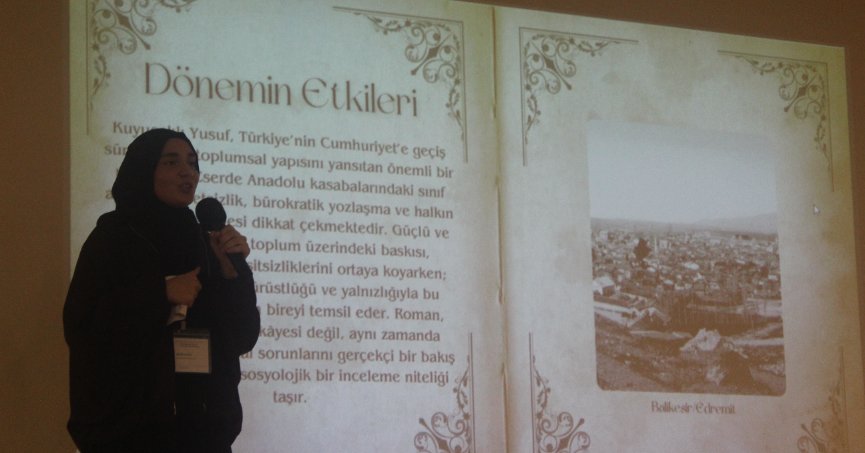 Dönemin Etkileri
Yusuf, Türkiye'nin Cumhuriyet'e geçiş
toplumsal yapısını yansıtan önemli bir
Anadolu kasabalarındaki sınıf
bürokratik yozlaşma ve halkın
dikkat çekmektedir. Güçlü ve
toplum üzerindeki baskısı,
ortaya koyarken;
ve yalnızlığıyla bu
bireyi temsil eder. Roman,
değil, aynı zamanda
sorunlarını gerçekçi bir bakış
sosyolojik bir inceleme niteliği
taşır.
Balıkesir/Edremit